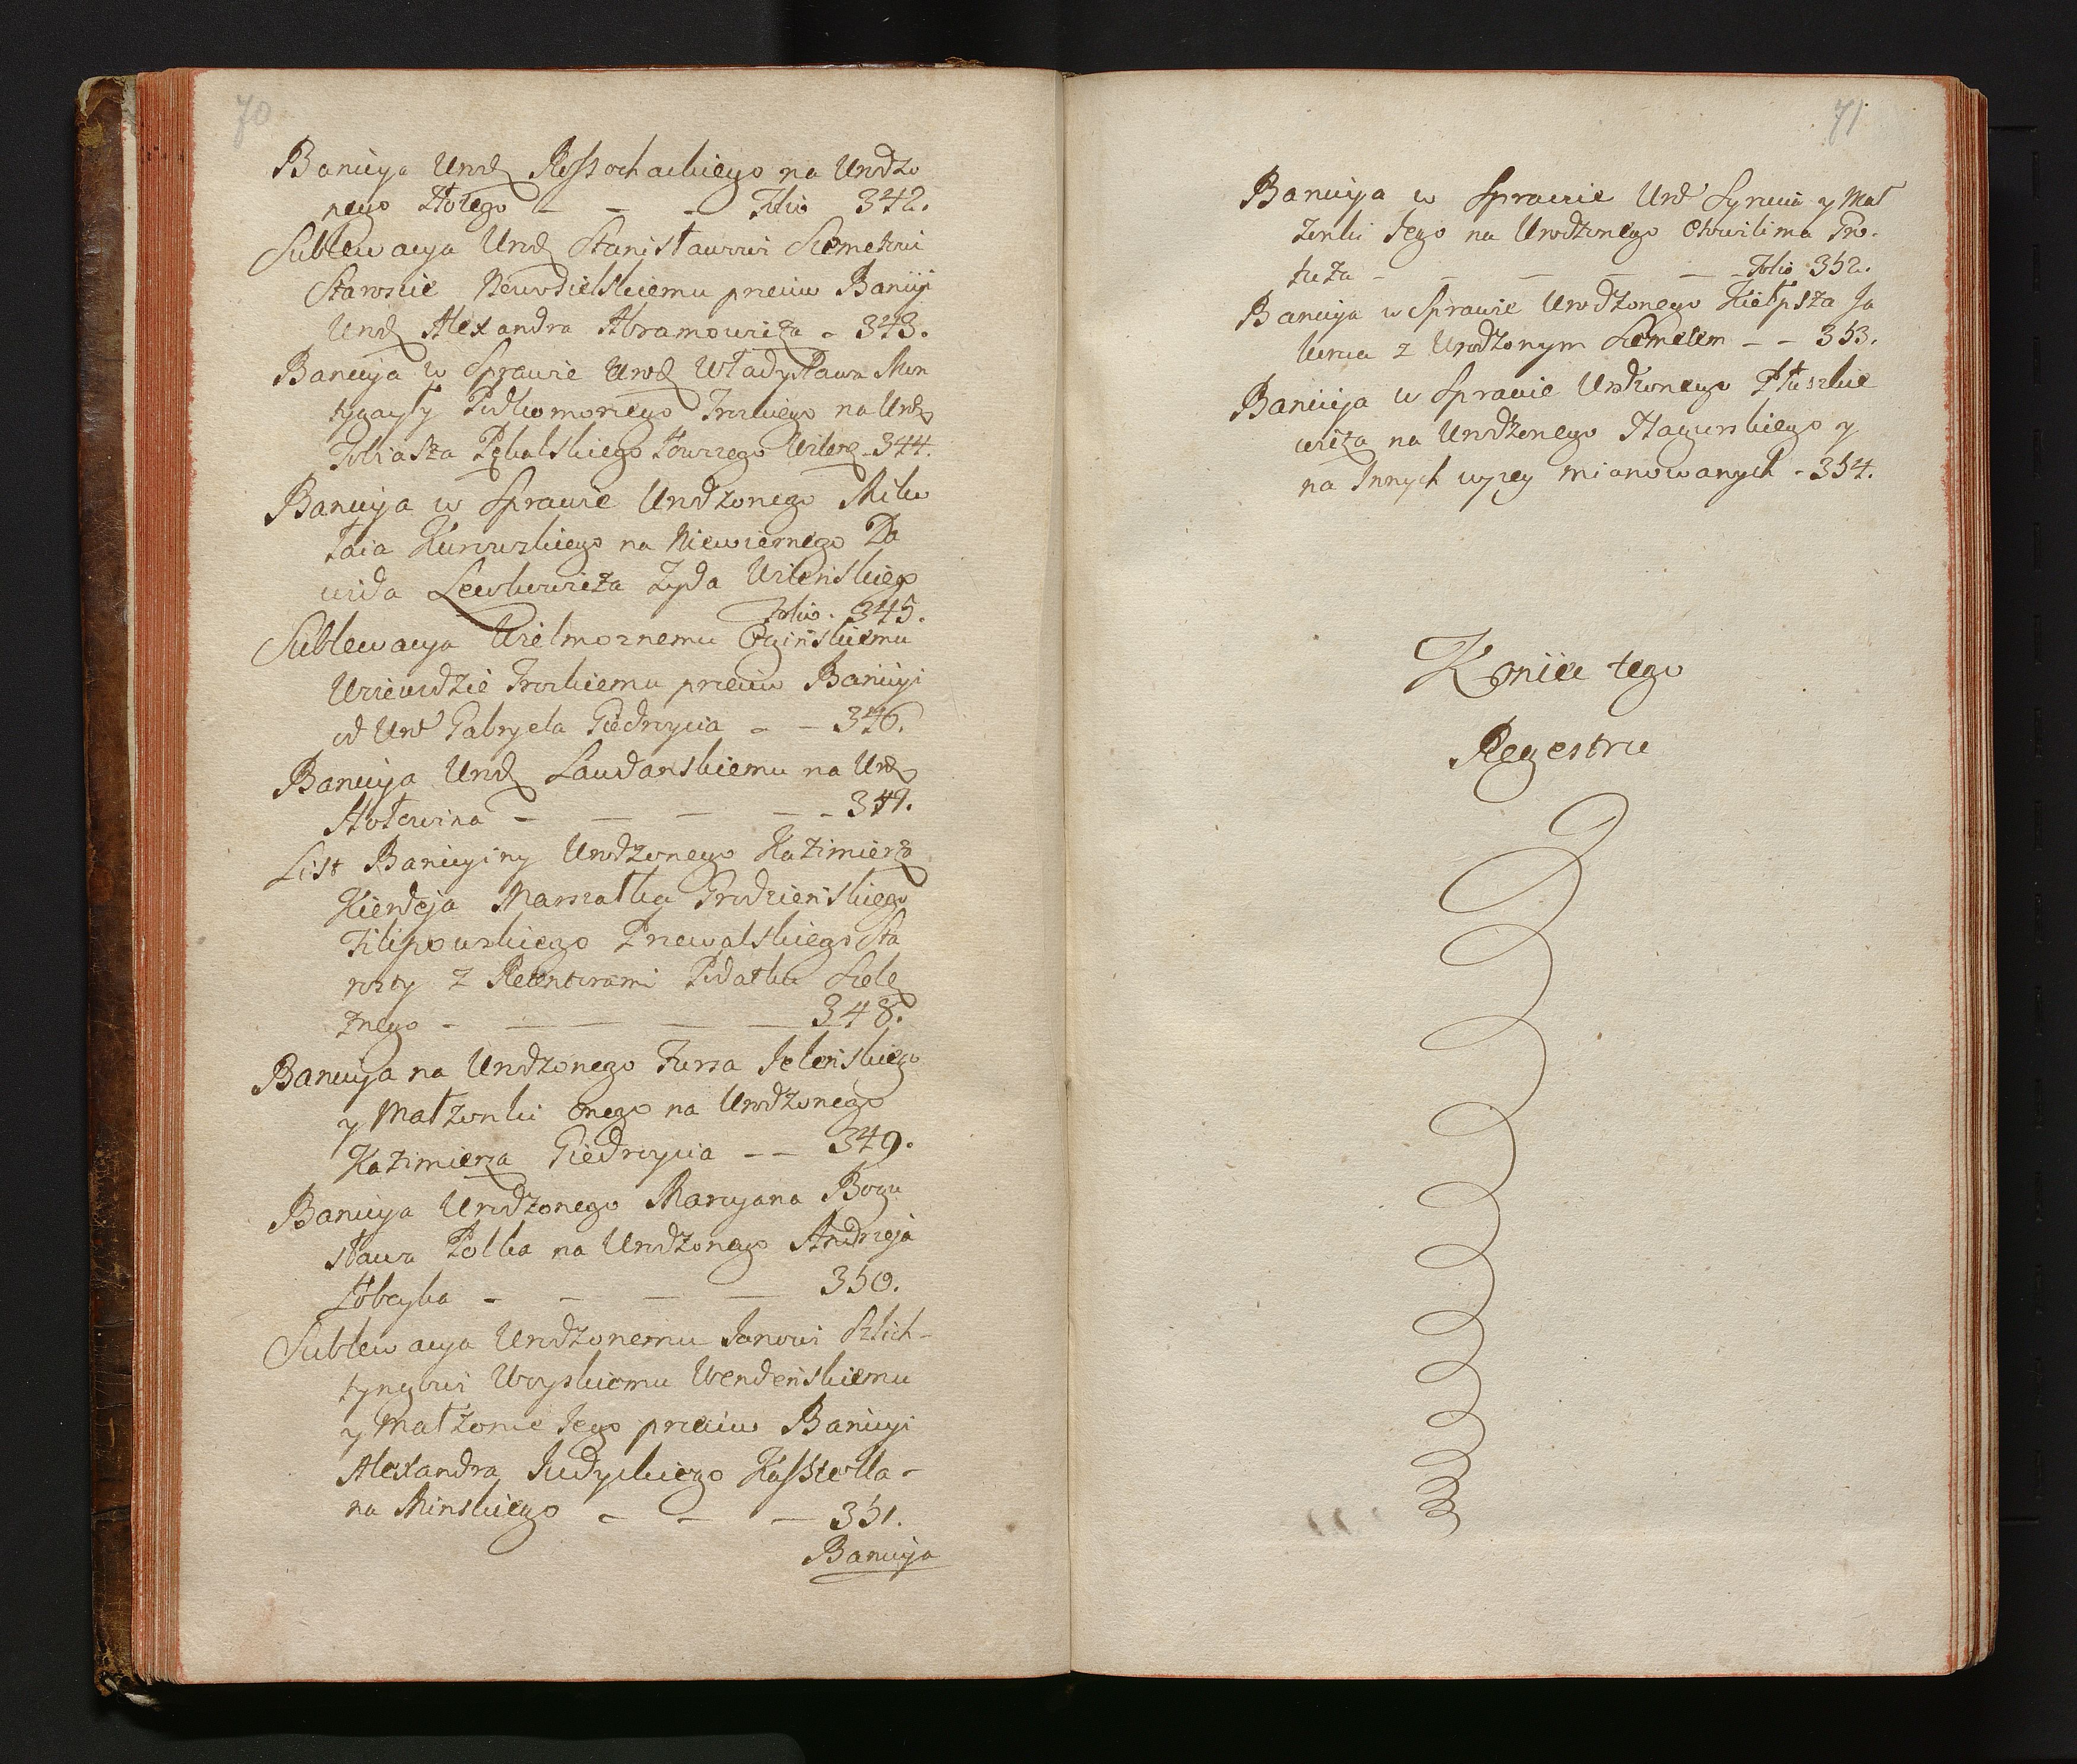 70
Banicya Urodz Rossochackiego na Urodzo
nego Hołego — — — Folio 342.
Sublewacya Urodz Stanisławowi Siemetowi
Staroscie Newodielskiemu przeciw Banicyi
Urodz Alexandra Abramowicza - 343.
Banicya w Sprawie Urodz Władysława Mon
tygayły Podkomorzego Trockiego na Urodz
Tobiasza Pękalskiego Łowczego Wileńs - 344.
Banicya w Sprawie Urodzonego Miko
łaia Kurowskiego na Niewiernego Da
wida Lewkowicza Żyda Wileńskiego
Folio. 345.
Sublewacya Wielmoznemu Oginskiemu
Woiewodzie Trockiemu przeciw Banicyi
od Urod Gabryela Giedroycia — — 346.
Banicya Urodz Laudanskiemu na Urodz
Hołowina — — — — 347.
List Banicyiny Urodzonego Kazimierza
Kierdeja Marszałka Grodzieńskiego
Filipowskiego Przewalskiego Sta
rosty z Retentorami Podatku Szelę
żnego — — — — — 348.
Banicya na Urodzonego Fursa Jeleńskiego
y Małżonki onego na Urodzonego
Kazimierza Giedroycia — — 349.
Banicya Urodzonego Marcyana Bogu
sława Żołka na Urodzonego Andrzeja
Łobeyka — — — — 350.
Sublewacya Urodzonemu Janowi Szlich-
tyngowi Woyskiemu Wendeńskiemu
y Małżonce Jego przeciw Banicyi
Alexandra Judyckiego Kasztella-
na Minskiego — — — 351.
Banicya
71
Banicya w Sprawie Urod Syrucia y Mał
żonki Jego na Urodzonego Chwilima Pro.
tuza — — — — Folio 352.
Banicya w Sprawie Urodzonego Kiełpsza Ja
kuba z Urodzonym Siemetem — — 353.
Banicya w Sprawie Urodzonego Płuszkie
wicza na Urodzonego Hagurskiego y
na Innych wyzey mianowanych - 354.
Koniec tego
Regestru